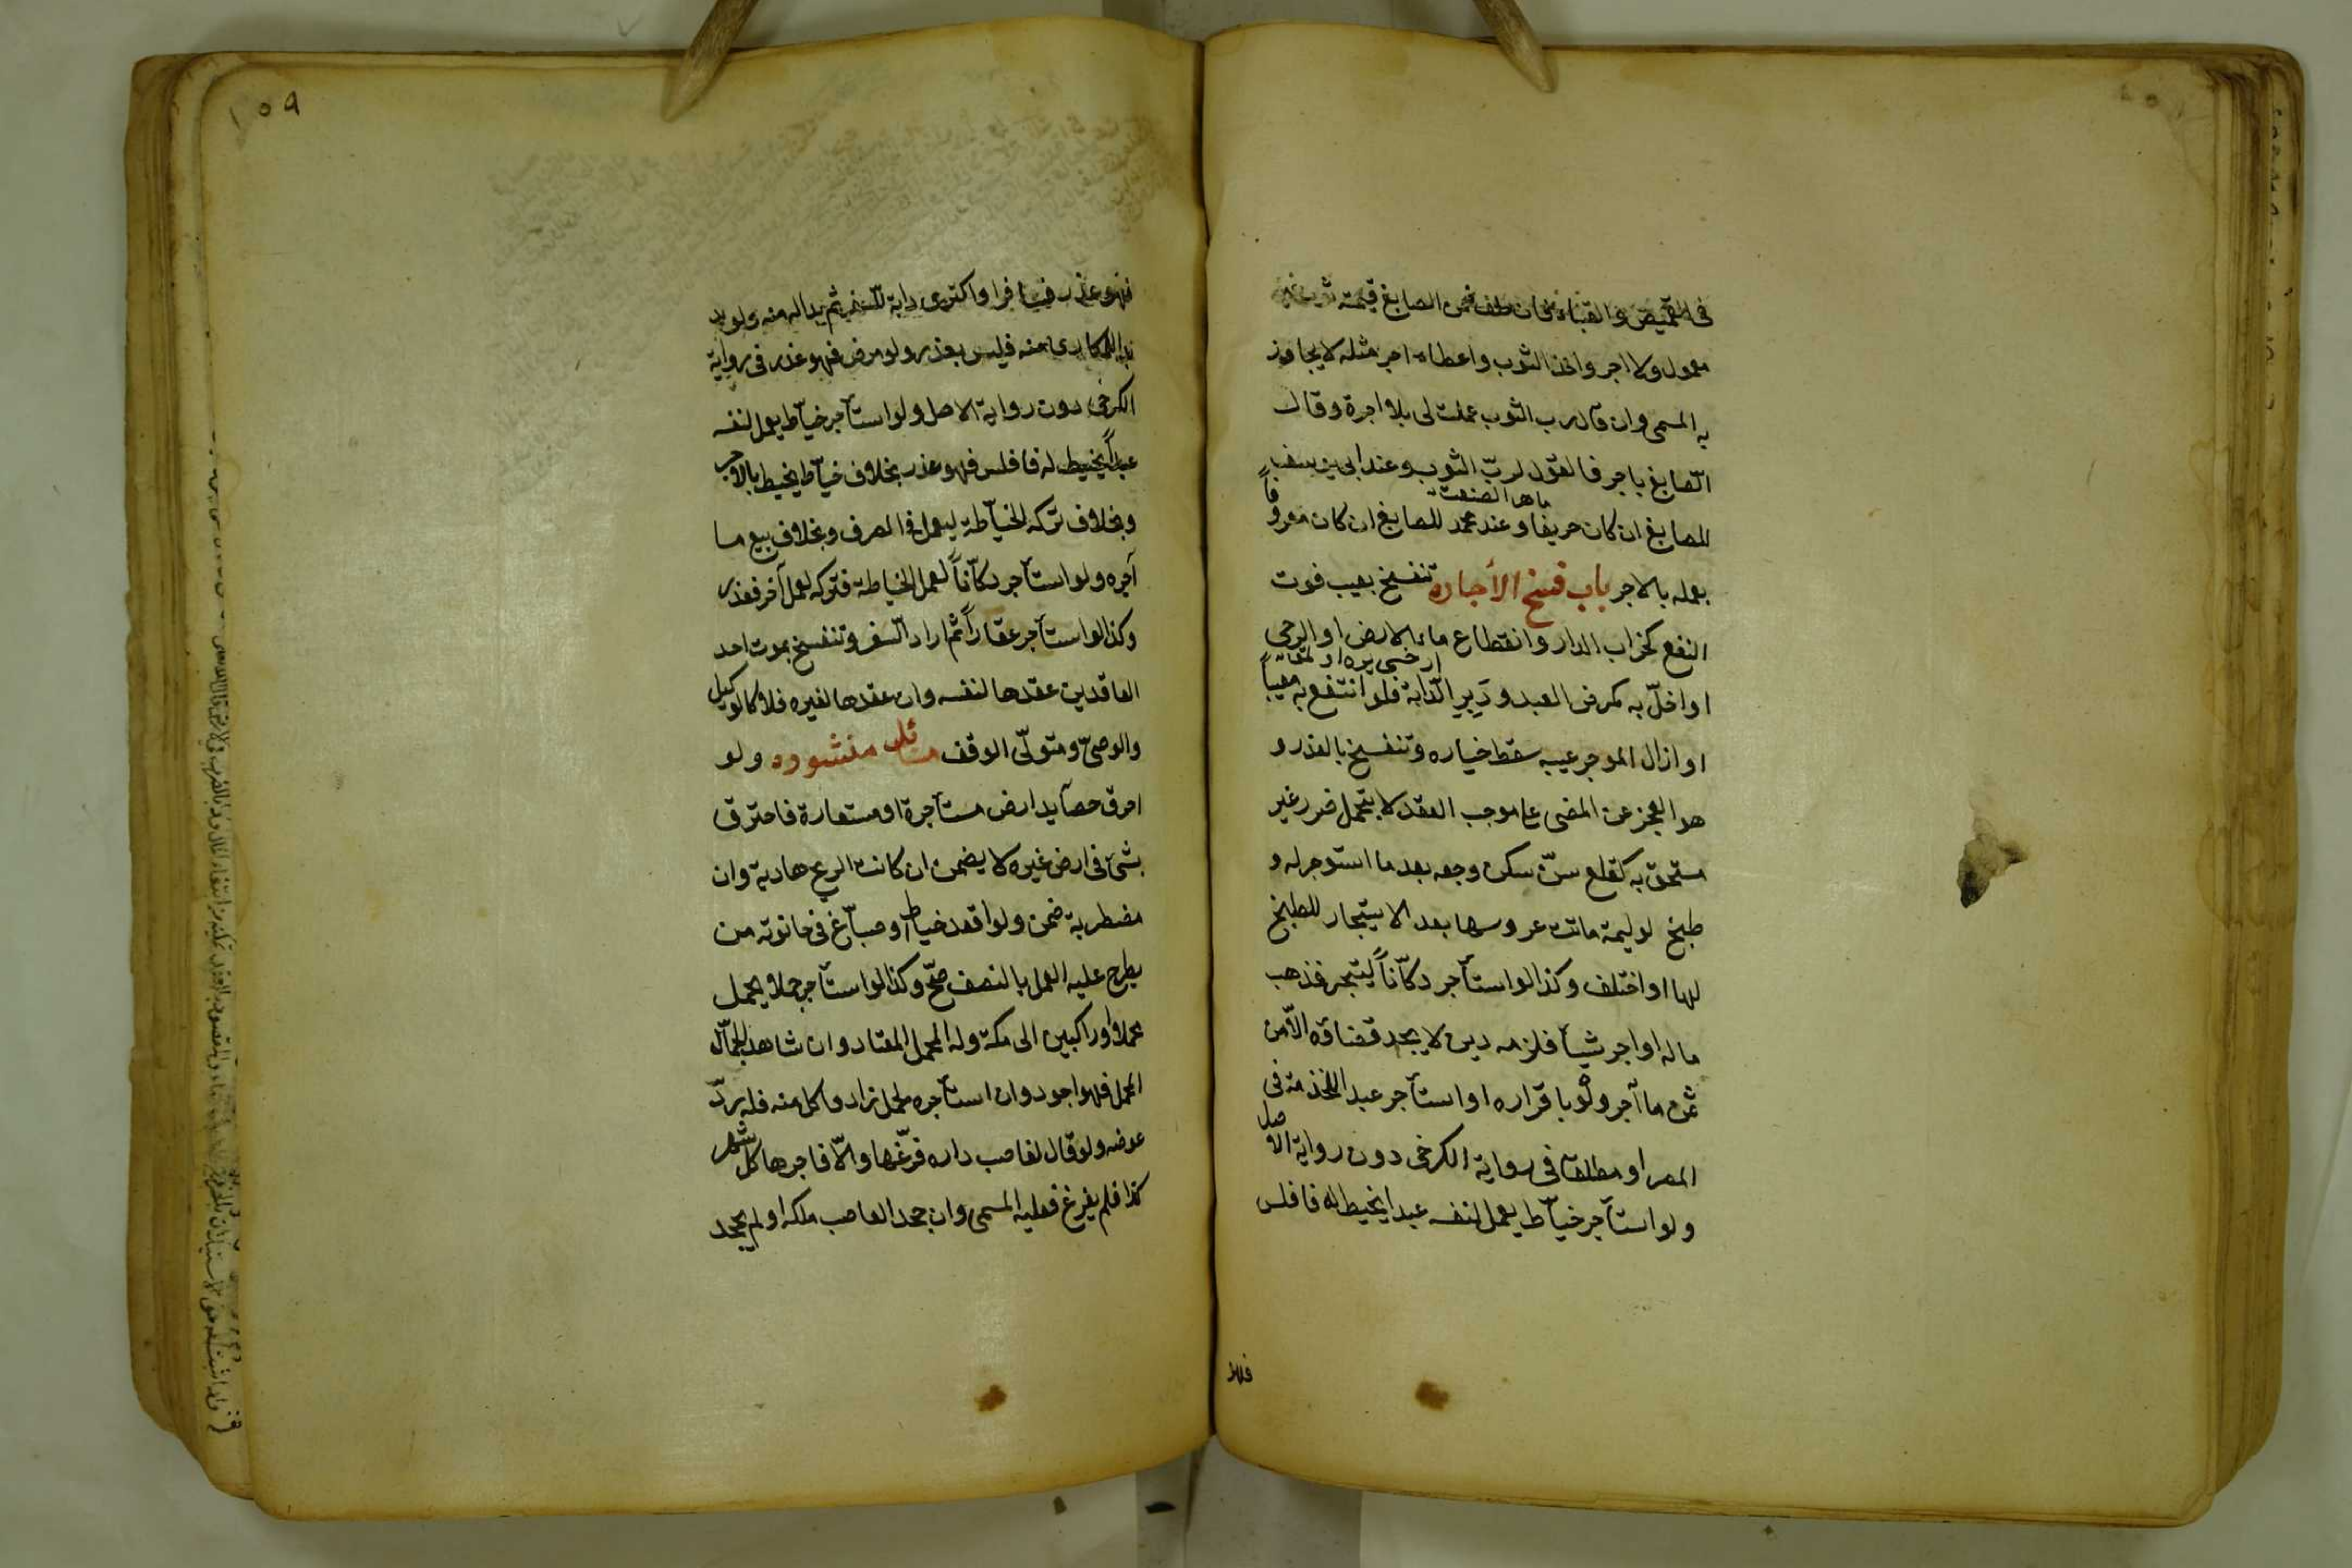 فى القميص والقباء فان حلف ضمن الصابغ قيمة ثوبه غير
معمول ولا اجر واخذ الثوب واعطاه اجر مثله لا يجاوز
به المسمى وان قال رب الثوب عملت لى بلا اجرة وقال
الصّابغ باجر فالقول لربّ الثوب وعند ابى يوسف
ماهر الصنعت
للصابغ ان كان حريفا وعند محمد للصابغ ان كان معروفاً
بعمله بالاجر باب فسخ الأجاره تنفسخ بعيب فوت
النفع كخراب الدار وانقطاع ماء الارض او الرحى
او اخلّ به كمرض العبد ودَبِر الدّابة فلو انتفع به معيباً
او ازال الموجر عيبه سقط خياره وتنفسخ بالعذر و
هو العجز عن المضى على موجب العقد لا بتحمل ضرر غير
مستحق به كقلع سنّ سكن وجعه بعد ما استوجر له و
طبخ لوليمة ماتت عروسها بعد الاستيجار للطبخ
لها او اختلف وكذا لو استأجر دكّاناً ليتجر فذهب
ماله او اجر شيأ فلزمه دين لا يجد قضاؤه الّا من
ثمن ما آجر ولو باقراره او استأجر عبدا للخذمة فى
المصر او مطلقا فى رواية الكرخى دون رواية الاصل
ولو استأجر خيّاط يعمل لنفسه عبدا يخيط له فافلس
فهو
١٥٩
فهو عذر فسافر او اكترى دابة للسفر ثم بدا له منه ولو بد
بدا للمكارى منه فليس بعذر ولو مرض فهو عذر فى رواية
الكرخى دون رواية الاصل ولو استأجر خيّاط يعمل لنفسه
عبداً يخيط له فافلس فهو عذر بخلاف خيّاط يخيط بالاجر
وبخلاف تركه الخيّاطة ليعمل فى الصرف وبخلاف بيع ما
آجره ولو استأجر دكّاناً لعمل الخياطة فتركه لعمل آخر فعذر
وكذا لو استأجر عقاراً ثم اراد السفر وتنفسخ بموت احد
العاقدين عقدها لنفسه وان عقدها لغيره فلا كالوكيل
والوصىّ ومتولّى الوقف مسائل منشوره ولو
احرق حصايد ارض مستأجرة او مستعارة فاحترق
بشئ فى ارض غيره لا يضمن ان كانت الريح هادية وان
مضطربة ضمن ولو اقعد خياط او صبّاغ فى حانوته من
يطرح عليه العمل بالنصف صحّ وكذا لو استأجر جملا يحمل
محملا وراكبين الى مكة وله المحمل المعتاد وان شاهد الجمّال
المحمل فهو اجود وان استأجره لحمل زاد فاكل منه فله ردّ
عوضه ولو قال لغاصب داره فرّغها والّا فاجرها كل شهر
كذا فلم يفرغ فعليه المسمى وان جحد الغاصب ملكه او لم يجحد